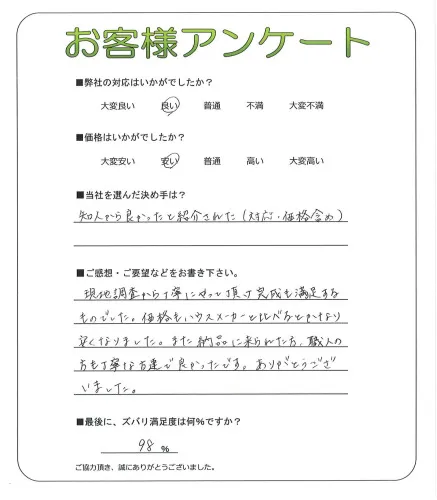 お客様アンケート
■弊社の対応はいかがでしたか？
大変良い 良い 普通 不満 大変不満
■価格はいかがでしたか？
大変安い 安い 普通 高い 大変高い
■当社を選んだ決め手は？
知人から良かったと紹介された(対応・価格含め)
■ご感想・ご要望などをお書き下さい。
現地調査から丁寧にやって頂き完成も満足する
ものでした。価格もハウスメーカーと比べるとかなり
安くなりました。また納品に来られた方、職人の
方も丁寧な方達で良かったです。ありがとうござ
いました。
■最後に、ズバリ満足度は何％ですか？
98 %
ご協力頂き、誠にありがとうございました。